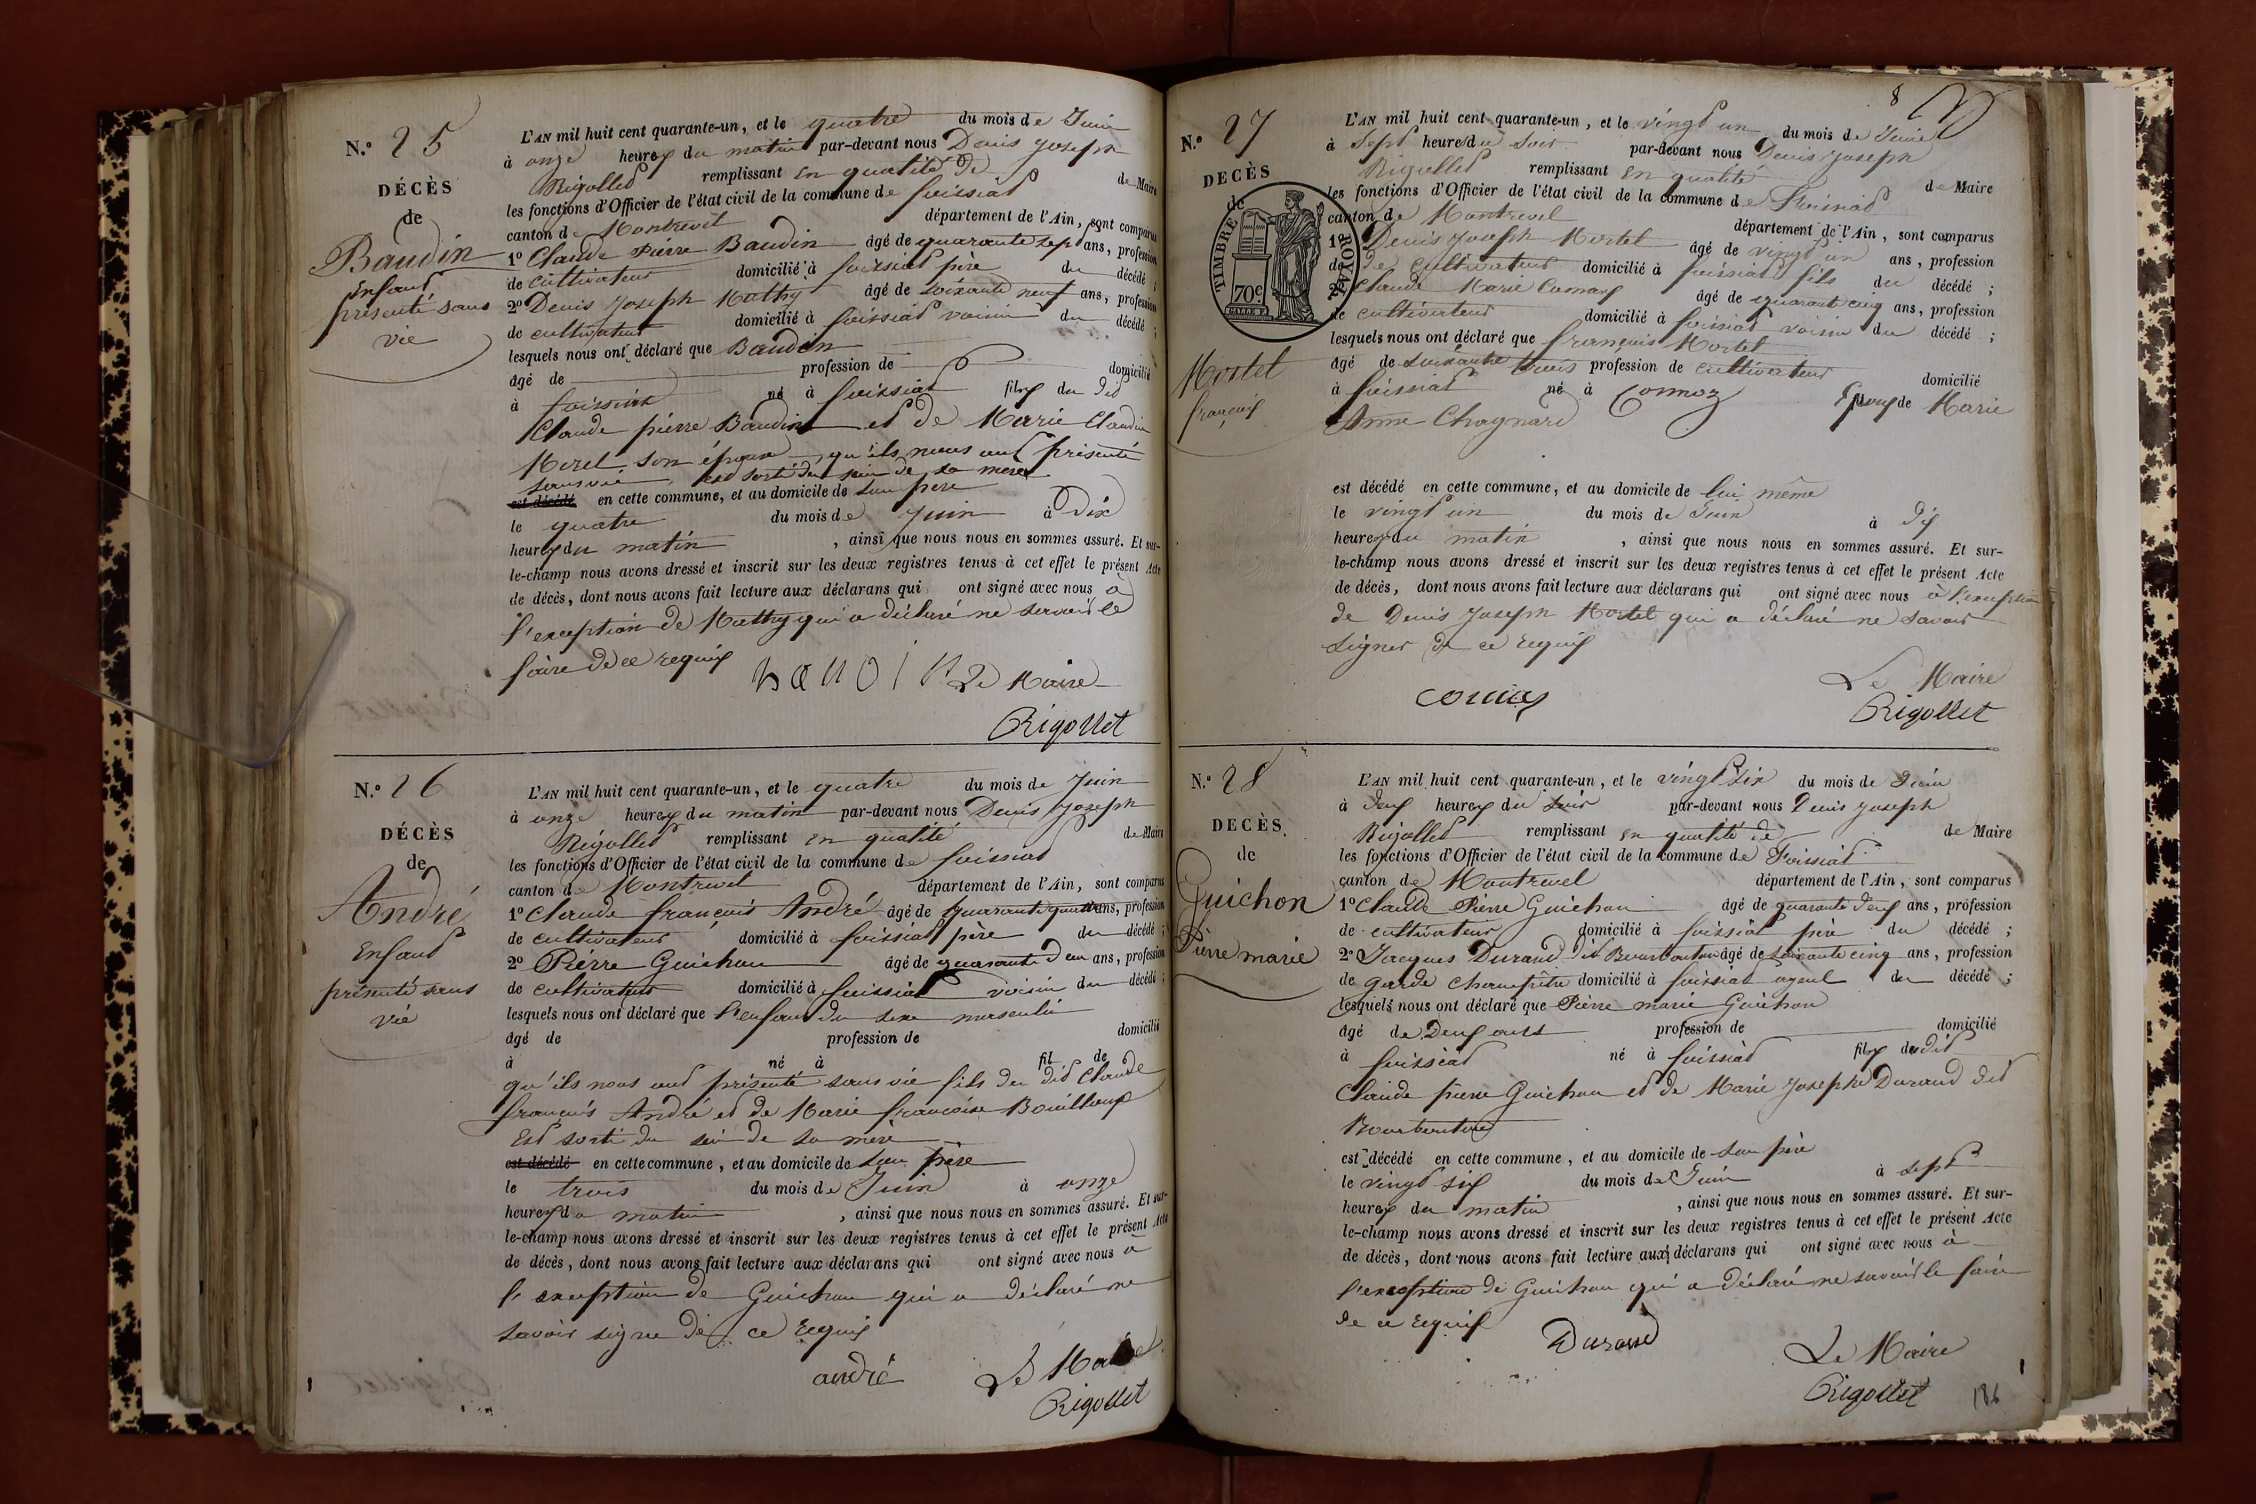 N.° 25
DÉCÈS
de
Baudin
Enfant
présenté sans
vie
L'AN mil huit cent quarante-un, et le quatre du mois de Juin
à onze heures du matin par-devant nous Denis Joseph
Rigollet remplissant en qualité de de Maire
les fonctions d'Officier de l'état civil de la commune de foissiat
canton de Montrevel département de l'Ain, sont comparus
1° Claude Pierre Baudin âgé de quarante sept ans, profession
de cultivateur domicilié à foissiat père du décédé ;
2° Denis Joseph Mathy âgé de soixante neuf ans, profession
de cultivateur domicilié à foissiat voisin du décédé ;
lesquels nous ont déclaré que Baudin
âgé de profession de domicilié
à foissiat né à foissiat fils du dit
Claude pierre Baudin et de Marie Claudine
Morel son épouse qu'ils nous ont présenté
sans vie est sorti du sein de sa mère
est décédé en cette commune, et au domicile de son père
le quatre du mois de Juin à Dix
heures du matin , ainsi que nous nous en sommes assuré. Et sur-
le-champ nous avons dressé et inscrit sur les deux registres tenus à cet effet le présent Acte
de décès, dont nous avons fait lecture aux déclarans qui ont signé avec nous à
l'exception de Mathy qui a déclaré ne savoir le
faire de ce requis
Le Maire
Rigollet
N.° 26
DÉCÈS
de
André
Enfant
présenté sans
vie
L'AN mil huit cent quarante-un, et le quatre du mois de Juin
à onze heures du matin par-devant nous Denis Joseph
Rigollet remplissant en qualité de Maire
les fonctions d'Officier de l'état civil de la commune de foissiat
canton de Montrevel département de l'Ain, sont comparus
1° Claude françois André âgé de quarante quatre ans, profession
de cultivateur domicilié à foissiat père du décédé ;
2° Pierre Guichon âgé de quarante deux ans, profession
de cultivateur domicilié à foissiat voisin du décédé ;
lesquels nous ont déclaré que l'enfant du sexe masculin
âgé de profession de domicilié
à né à fil de
qu'ils nous ont présenté sans vie fils du dit Claude
françois André et de Marie françoise Bouilloux
Est sorti du sein de sa mère
est décédé en cette commune, et au domicile de son père
le trois du mois de Juin à onze
heures du matin , ainsi que nous nous en sommes assuré. Et sur-
le-champ nous avons dressé et inscrit sur les deux registres tenus à cet effet le présent Acte
de décès, dont nous avons fait lecture aux déclarans qui ont signé avec nous à
l'exception de Guichon qui a déclaré ne
savoir signer de ce requis
andré Le Maire
Rigollet
8
N.° 27
DECÈS
de
TIMBRE ROYAL
70c
Mortel
françois
L'AN mil huit cent quarante-un, et le vingt un du mois de Juin
à Sept heures du soir par-devant nous Denis Joseph
Rigollet remplissant en qualité de Maire
les fonctions d'Officier de l'état civil de la commune de Foissiat
canton de Montrevel département de l'Ain, sont comparus
1° Denis Joseph Mortel âgé de vingt un ans, profession
de cultivateur domicilié à foissiat fils du décédé ;
2° Claude Marie Comas âgé de quarante cinq ans, profession
de cultivateur domicilié à foissiat voisin du décédé ;
lesquels nous ont déclaré que françois Mortel
âgé de soixante trois profession de cultivateur domicilié
à foissiat né à Cormoz Epoux de Marie
Anne Chagnard
est décédé en cette commune, et au domicile de lui même
le vingt un du mois de Juin à dix
heures du matin , ainsi que nous nous en sommes assuré. Et sur-
le-champ nous avons dressé et inscrit sur les deux registres tenus à cet effet le présent Acte
de décès, dont nous avons fait lecture aux déclarans qui ont signé avec nous à l'exception
de Denis Joseph Mortel qui a déclaré ne savoir
signer de ce requis
Le Maire
Rigollet
N.° 28
DECÈS
de
Guichon
Pierre marie
L'AN mil huit cent quarante-un, et le vingt six du mois de Juin
à deux heures du soir par-devant nous Denis Joseph
Rigollet remplissant en qualité de de Maire
les fonctions d'Officier de l'état civil de la commune de Foissiat
canton de Montrevel département de l'Ain, sont comparus
1° Claude Pierre Guichon âgé de quarante deux ans, profession
de cultivateur domicilié à foissiat père du décédé ;
2° Jacques Durand dit Bourbouton âgé de soixante cinq ans, profession
de garde champêtre domicilié à foissiat ayeul du décédé ;
lesquels nous ont déclaré que Pierre marie Guichon
âgé de Deux ans profession de domicilié
à foissiat né à foissiat fils du dit
Claude pierre Guichon et de Marie Josephe Durand dit
Bourbouton
est décédé en cette commune, et au domicile de son père
le vingt six du mois de Juin à sept
heures du matin , ainsi que nous nous en sommes assuré. Et sur-
le-champ nous avons dressé et inscrit sur les deux registres tenus à cet effet le présent Acte
de décès, dont nous avons fait lecture aux déclarans qui ont signé avec nous à
l'exception de Guichon qui a déclaré ne savoir le faire
de ce requis
Durand Le Maire
Rigollet
186